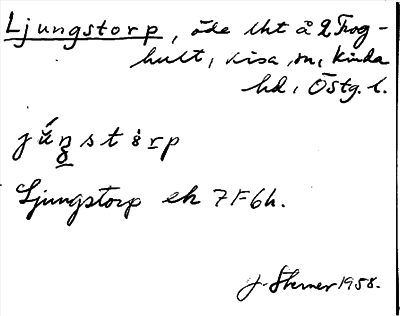 Ljungstorp, öde lht å 2 Trog-
hult, Kisa sn, Kinda
hd, Östg. l.
Ljungstorp ek 7F6h.
J. Sterner 1958.